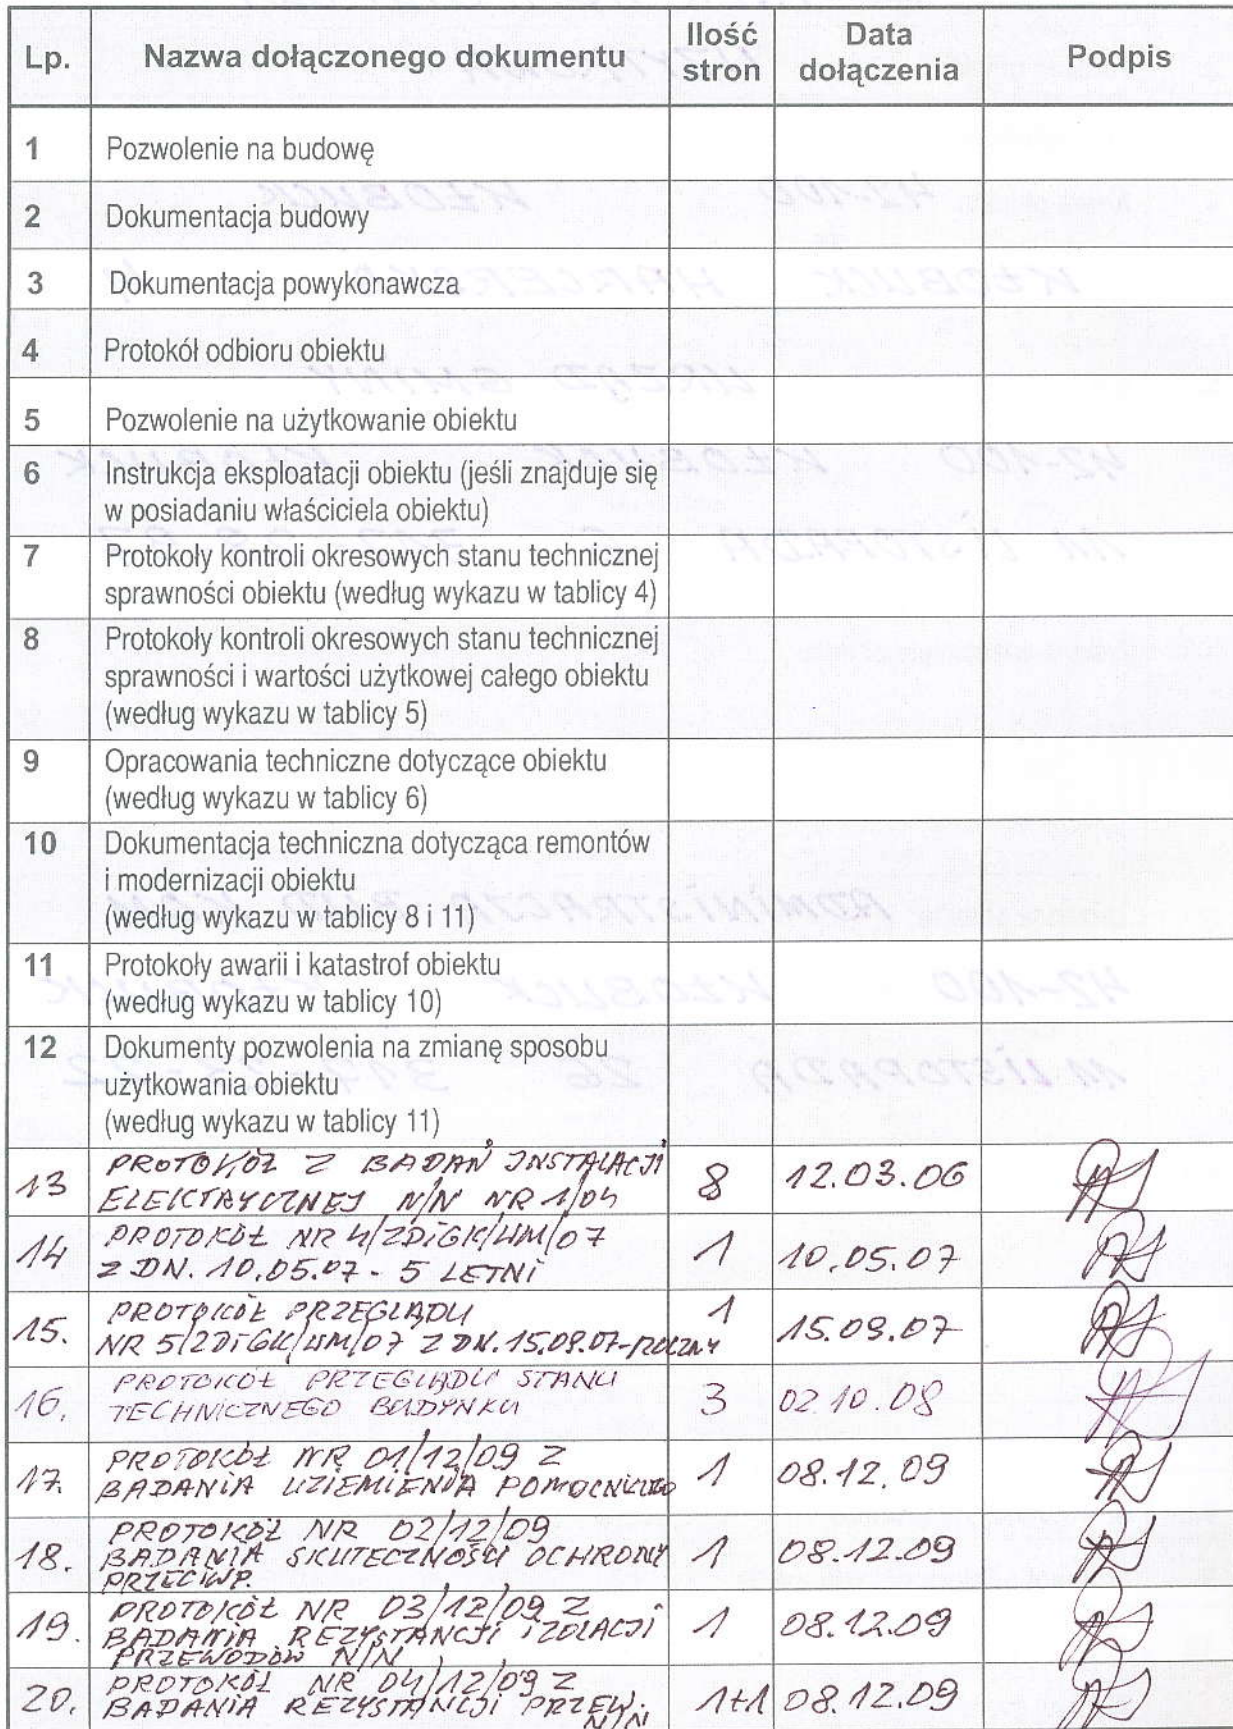 Lp. Nazwa dołączonego dokumentu Ilość stron Data dołączenia Podpis
1 Pozwolenie na budowę
2 Dokumentacja budowy
3 Dokumentacja powykonawcza
4 Protokół odbioru obiektu
5 Pozwolenie na użytkowanie obiektu
6 Instrukcja eksploatacji obiektu (jeśli znajduje się
w posiadaniu właściciela obiektu)
7 Protokoły kontroli okresowych stanu technicznej
sprawności obiektu (według wykazu w tablicy 4)
8 Protokoły kontroli okresowych stanu technicznej
sprawności i wartości użytkowej całego obiektu
(według wykazu w tablicy 5)
9 Opracowania techniczne dotyczące obiektu
(według wykazu w tablicy 6)
10 Dokumentacja techniczna dotycząca remontów
i modernizacji obiektu
(według wykazu w tablicy 8 i 11)
11 Protokoły awarii i katastrof obiektu
(według wykazu w tablicy 10)
12 Dokumenty pozwolenia na zmianę sposobu
użytkowania obiektu
(według wykazu w tablicy 11)
13 PROTOKÓŁ Z BADAŃ INSTALACJI
ELEKTRYCZNEJ N/N NR 1/04 8 12.03.06
14 PROTOKÓŁ NR 4/ZDiGK/UM/07
Z DN. 10.05.07 - 5 LETNI 1 10.05.07
15. PROTOKÓŁ PRZEGLĄDU
NR 5/ZDiGK/UM/07 Z DN. 15.09.07-ROCZNY 1 15.09.07
16. PROTOKÓŁ PRZEGLĄDU STANU
TECHNICZNEGO BUDYNKU 3 02.10.08
17. PROTOKÓŁ NR 01/12/09 Z
BADANIA UZIEMIENIA POMOCNICZEGO 1 08.12.09
18. PROTOKÓŁ NR 02/12/09
BADANIA SKUTECZNOŚCI OCHRONY
PRZECIWP. 1 08.12.09
19. PROTOKÓŁ NR 03/12/09 Z
BADANIA REZYSTANCJI IZOLACJI
PRZEWODÓW N/N 1 08.12.09
20. PROTOKÓŁ NR 04/12/09 Z
BADANIA REZYSTANCJI PRZEW.
N/N 1+1 08.12.09